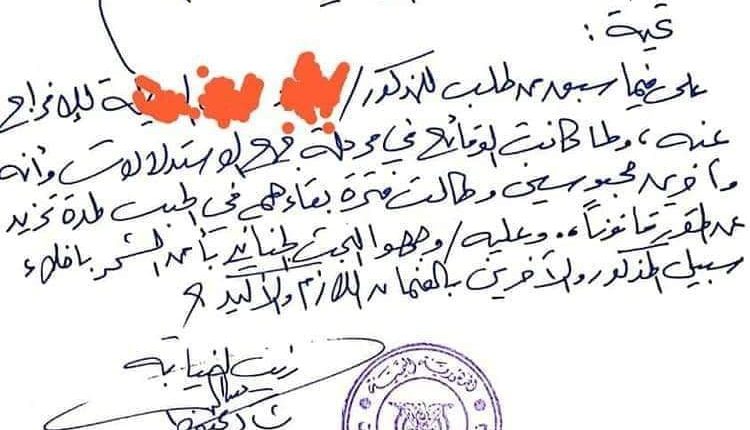 تحية :
على فيما سبق من طلب المذكور / للإفراج
عنه ، ولما كانت الوقائع في مرحلة جمع الاستدلالات وأنه
وآخرين محبوسين وطالت فترة بقاءهم في الحبس لمدة تزيد
عن المقرر قانوناً .. وعليه / وجهوا البحث الجنائي بتأمد الشحر بإخلاء
سبيل المذكور والآخرين بالضمان اللازم والأكيد
رئيس النيابة
الجمهورية اليمنية